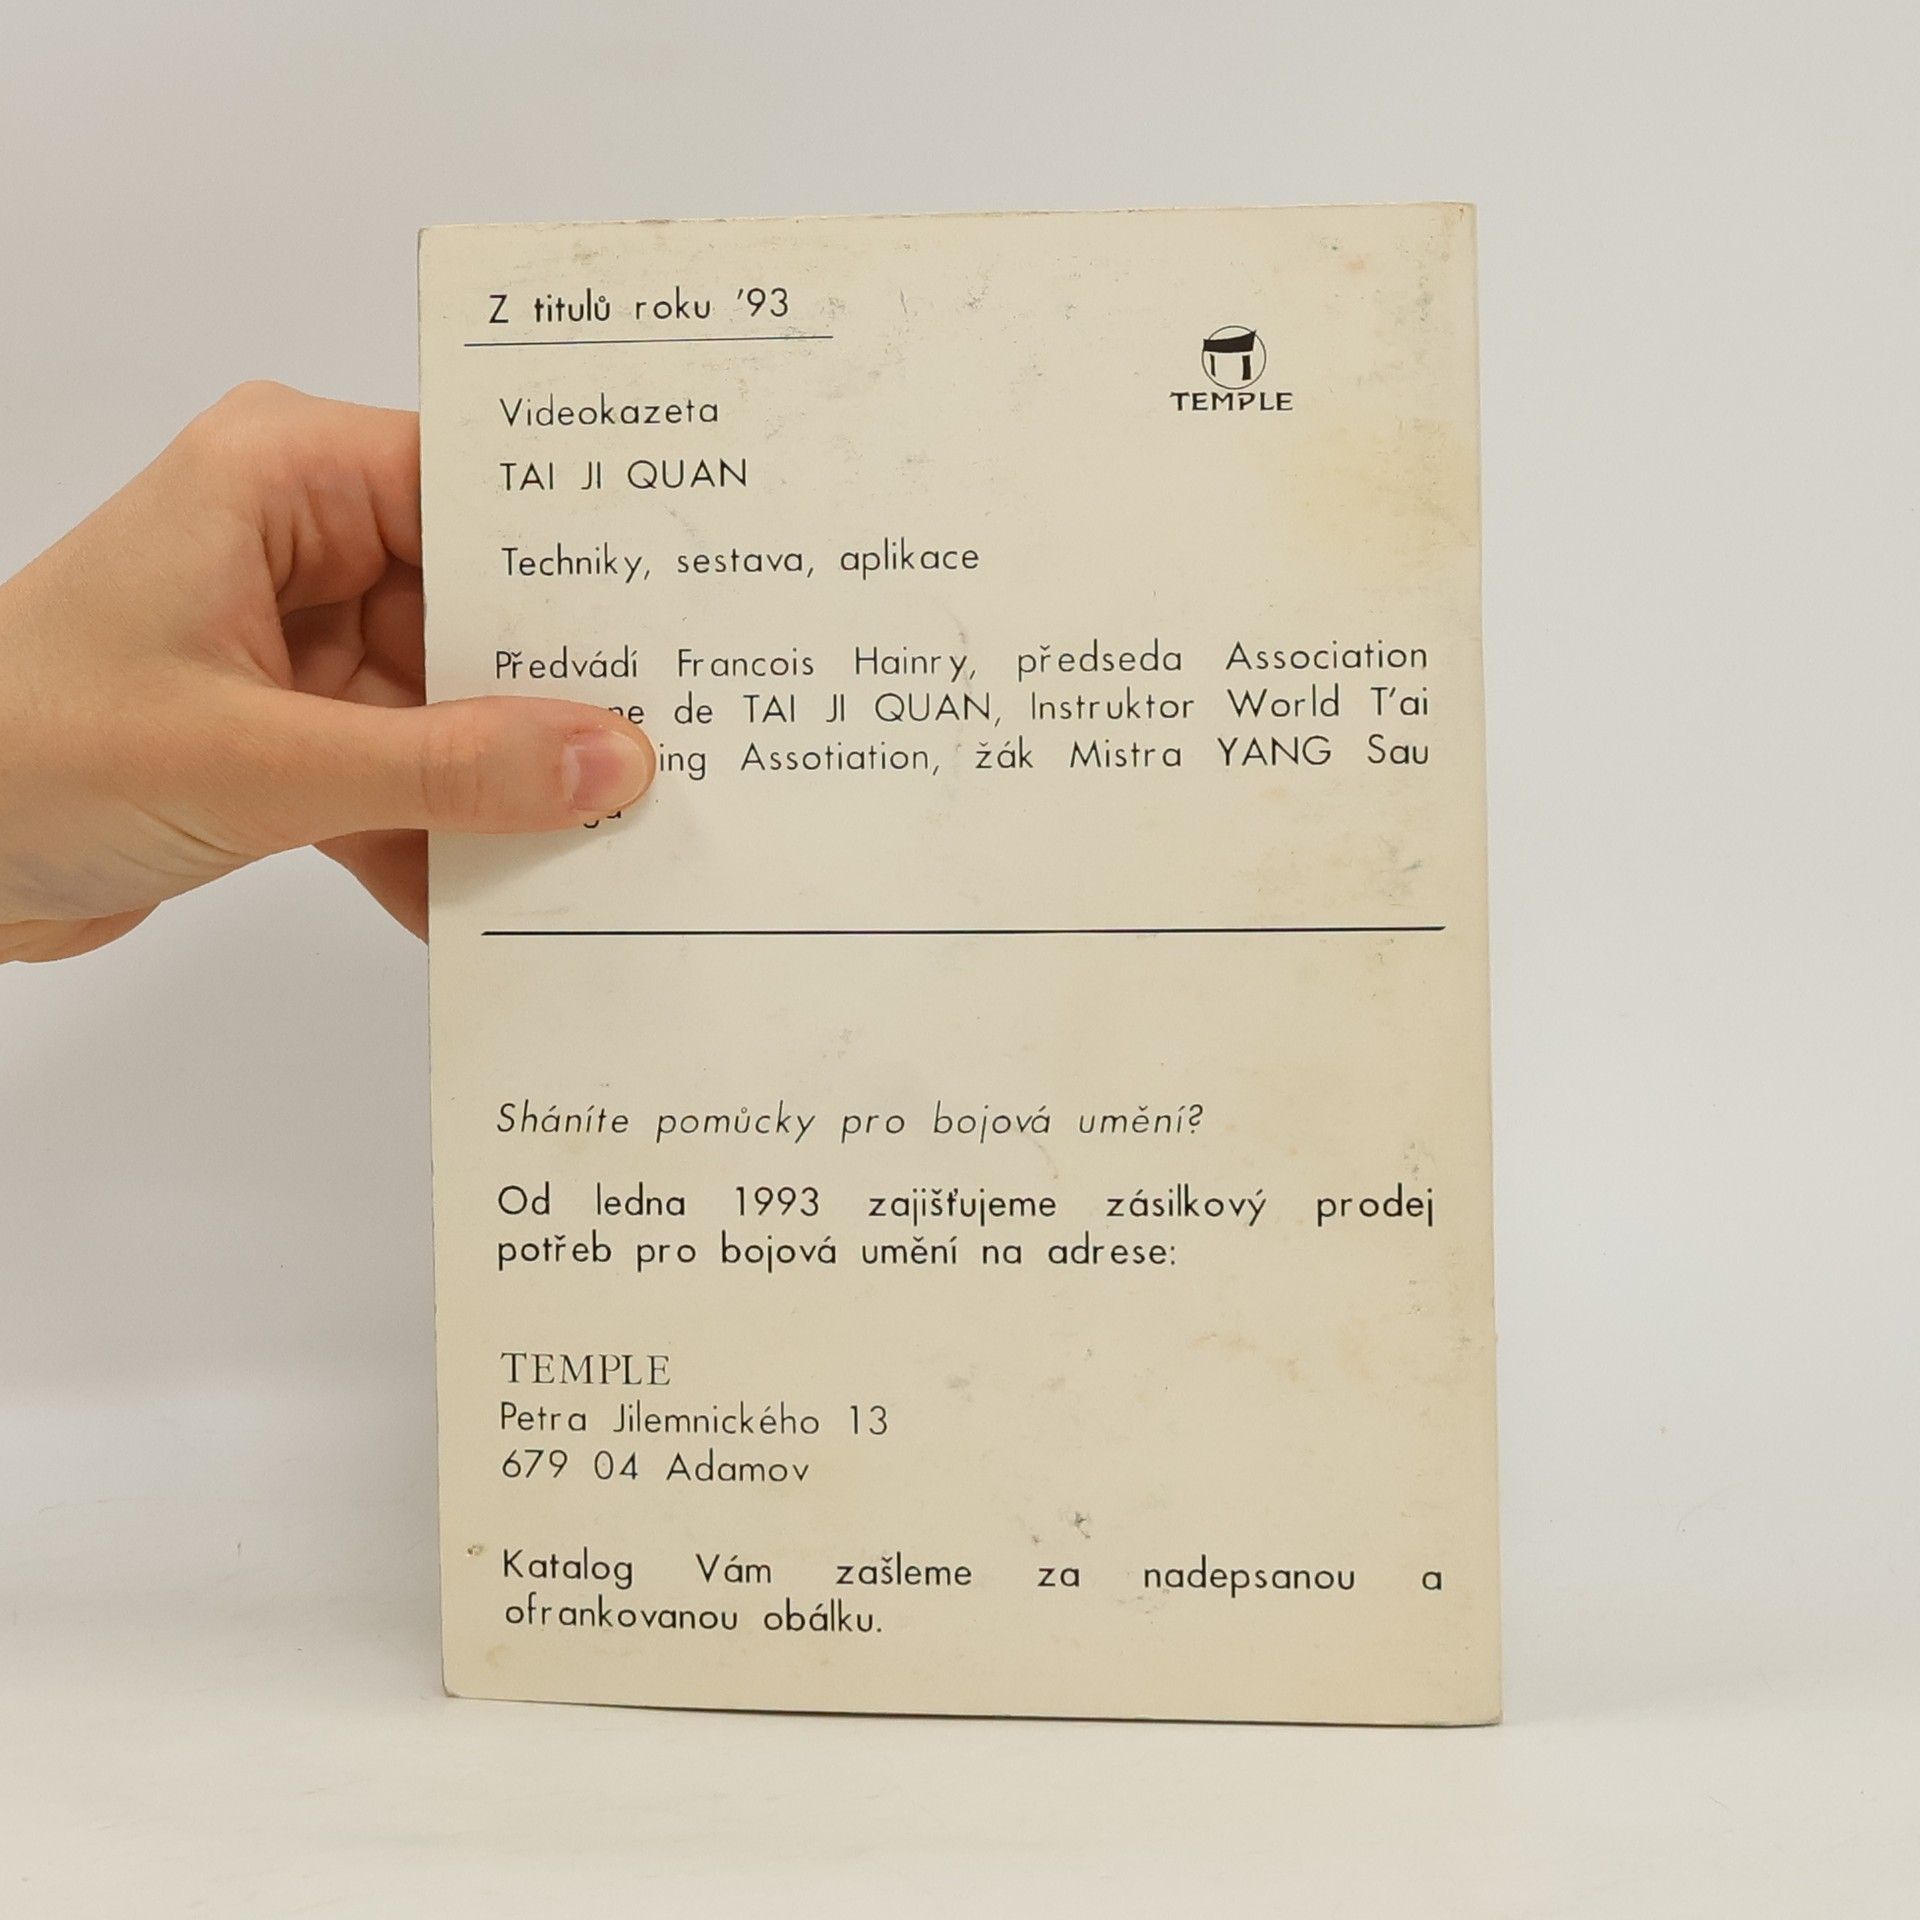 Z titulů roku '93
TEMPLE
Videokazeta
TAI JI QUAN
Techniky, sestava, aplikace
Předvádí Francois Hainry, předseda Association
de TAI JI QUAN, Instruktor World T'ai
Assotiation, žák Mistra YANG Sau
Sháníte pomůcky pro bojová umění?
Od ledna 1993 zajišťujeme zásilkový prodej
potřeb pro bojová umění na adrese:
TEMPLE
Petra Jilemnického 13
679 04 Adamov
Katalog Vám zašleme za nadepsanou a
ofrankovanou obálku.